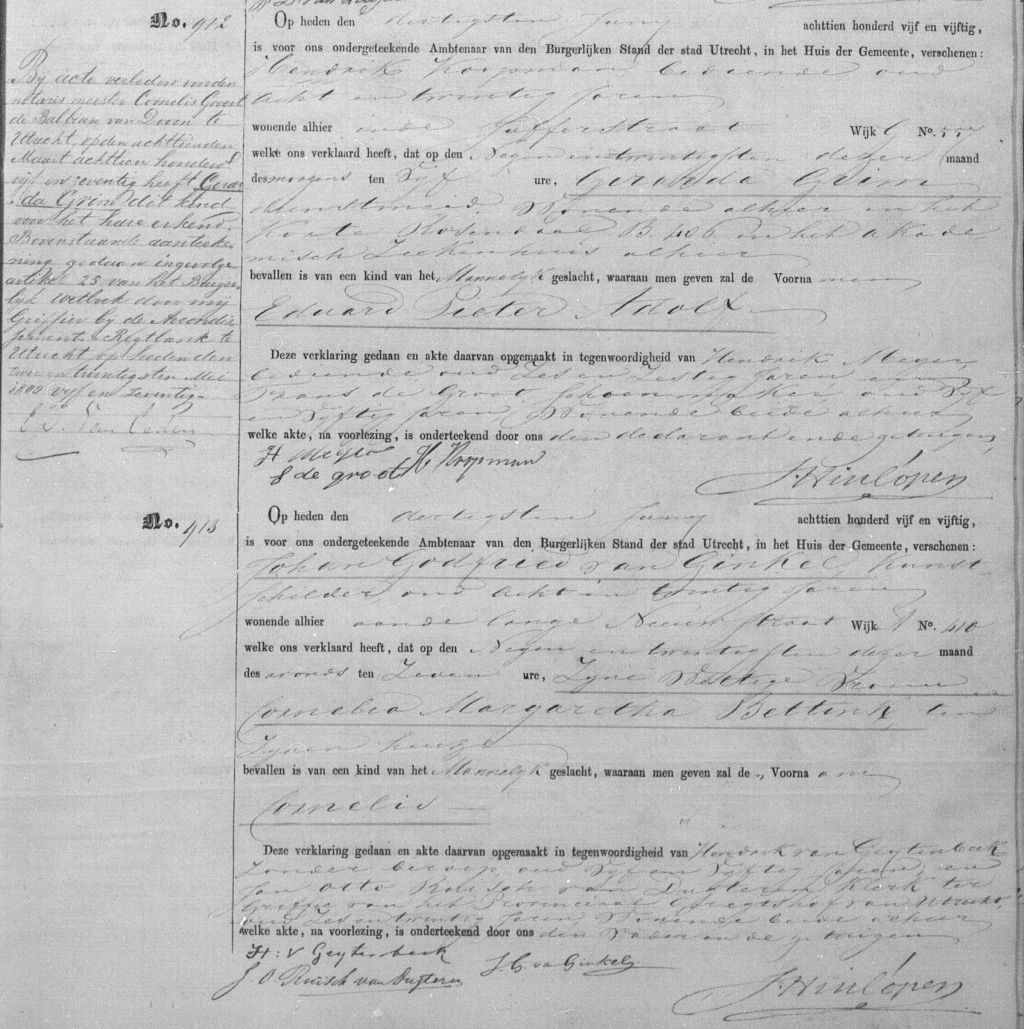 No. 912
Op heden den dertigsten Juny achttien honderd vijf en vijftig,
is voor ons ondergeteekende Ambtenaar van den Burgerlijken Stand der stad Utrecht, in het Huis der Gemeente, verschenen:
Hendrik Koopman bediende oud
acht en twintig jaren
wonende alhier inde Jufferstraat Wijk No.
welke ons verklaard heeft, dat op den Negen en twintigsten dezer maand
des morgens ten Vijf ure, Gerarda Grim
dienstmeid, Wonende alhier in het
Korte Rosendaal B. 406 in het Akade
misch Ziekenhuis alhier
bevallen is van een kind van het Mannelyk geslacht, waaraan men geven zal de Voornamen
Eduard Pieter Adolf
Deze verklaring gedaan en akte daarvan opgemaakt in tegenwoordigheid van Hendrik Meyer,
bediende oud Zeven Zestig jaren en
Frans de Groot schoenmaker oud Vyf
en Vyftig jaren, Wonende beide alhier
welke akte, na voorlezing, is onderteekend door ons den declarant en de getuigen,
H Meyer H Koopman
f de groot
J. Hinlopen
By acte verleden vanden
notaris meester Cornelis Govert
de Balbian van Doorn te
Utrecht, op den achttienden
Maart achttien honderd
vijf en zeventig heeft Gerar
da Grim dit kind
voor het hare erkend.
Bovenstaande aanteeke
ning gedaan ingevolge
artikel 25 van het Burger
lijk wetboek door mij
Griffier bij de Arrondis
sements Regtbank te
Utrecht, op heden den
twee en twintigsten Mei
1800 vijf en zeventig
No. 913
Op heden den dertigsten Juny achttien honderd vijf en vijftig,
is voor ons ondergeteekende Ambtenaar van den Burgerlijken Stand der stad Utrecht, in het Huis der Gemeente, verschenen:
Johan Godfried van Ginkel, Kunst-
schilder, oud acht en twintig jaren
wonende alhier aan de lange Nieuwstraat Wijk No. 410
welke ons verklaard heeft, dat op den Negen en twintigsten dezer maand
des avonds ten Zeven ure, Zyne Wettige Vrouw
Cornelia Margaretha Bettink, ten
Zynen huize
bevallen is van een kind van het Mannelyk geslacht, waaraan men geven zal de „ Voornaam
Cornelis
Deze verklaring gedaan en akte daarvan opgemaakt in tegenwoordigheid van Hendrik van Geytenbeek
Zonder beroep, oud Vyf en Vyftig jaren, en
Jan Otto Ruisch van Dugteren Klerk ter
Griffie van het Provinciaal Geregtshof van Utrecht,
oud Zes en twintig jaren Wonende beide alhier
welke akte, na voorlezing, is onderteekend door ons den Vader en de getuigen
H: v Geytenbeek
J. G. van Ginkel
J. O. Ruisch van Dugteren
J. Hinlopen